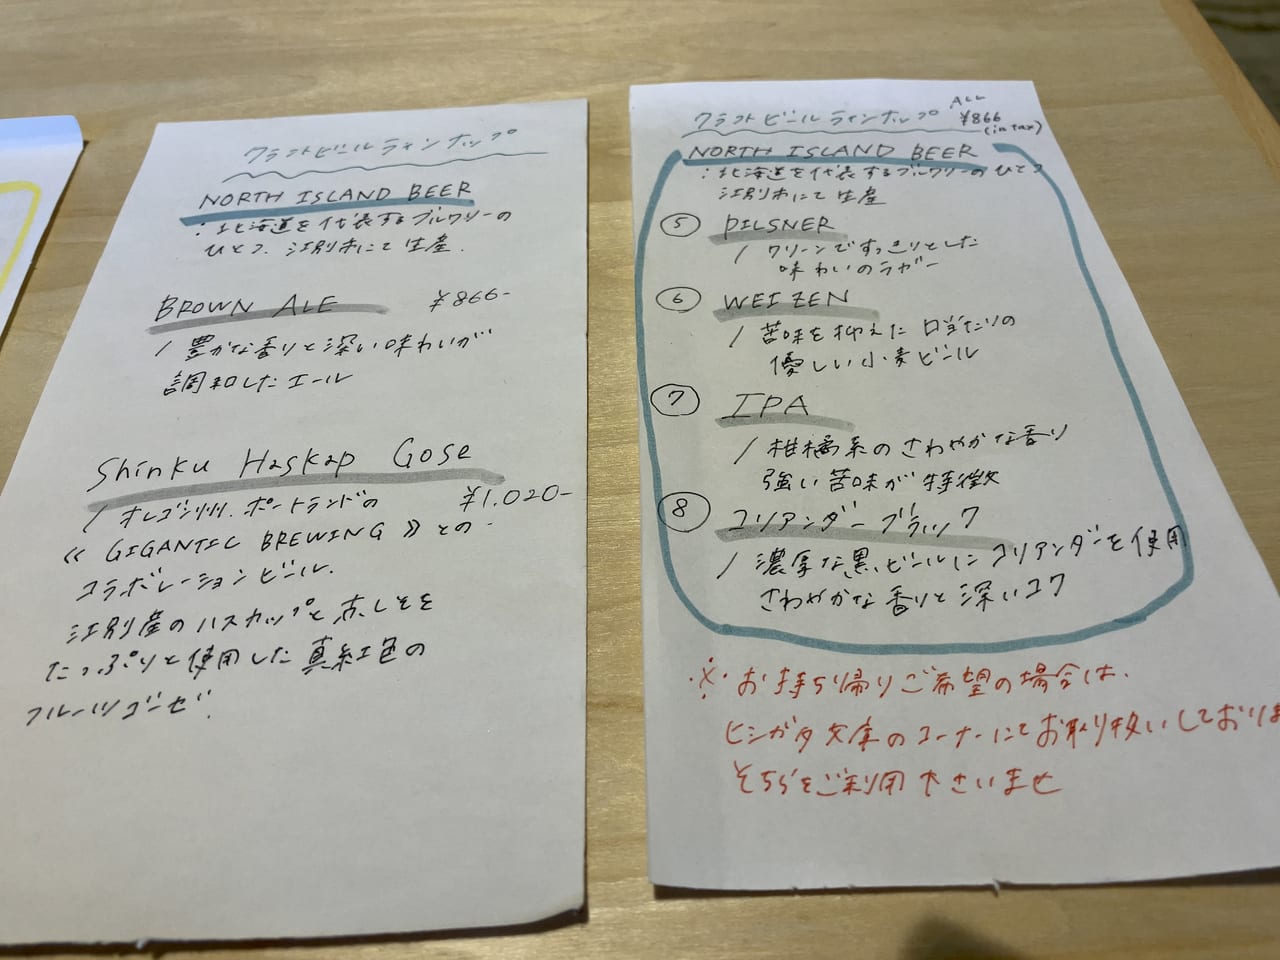 クラフトビールラインナップ
NORTH ISLAND BEER
:北海道を代表するブルワリーの
ひとつ. 江別市にて生産.
BROWN ALE ¥866-
/ 豊かな香りと深い味わいが
調和したエール
Shinku Haskap Gose
/ オレゴン州. ポートランドの ¥1.020-
≪ GIGANTIC BREWING ≫ との
コラボレーションビール.
江別産のハスカップと赤しそを
たっぷりと使用した真紅色の
フルーツゴーゼ.
クラフトビールラインナップ
ALL
¥866
(in tax)
NORTH ISLAND BEER
:北海道を代表するブルワリーのひとつ
江別市にて生産
⑤ PILSNER
/ クリーンですっきりとした
味わいのラガー
⑥ WEIZEN
/ 苦味を抑えた口当たりの
優しい小麦ビール
⑦ IPA
/ 柑橘系のさわやかな香り
強い苦味が特徴
⑧ コリアンダーブラック
/ 濃厚な黒ビールにコリアンダーを使用
さわやかな香りと深いコク
※ お持ち帰りご希望の場合は.
ヒシガタ文庫のコーナーにてお取り扱いしておりま
そちらをご利用下さいませ